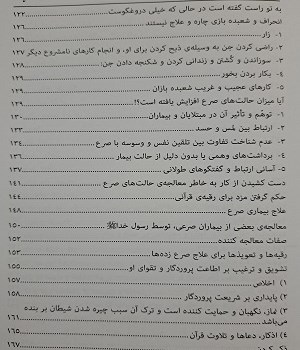 به تو راست گفته است در حالی که خیلی دروغگوست ۱۲۳
انحراف و شعبده بازی چاره و علاج نیستند ۱۲۶
۱- زار ۱۲۶
۲- راضی کردن جن به وسیله‌ی ذبح کردن برای او، و انجام کارهای نامشروع دیگر ۱۲۷
۳- سوزاندن و کُشتن و زندانی کردن و شکنجه دادن جن: ۱۲۸
۴- بکار بردن بخور ۱۲۹
۵- کارهای عجیب و غریب شعبده بازان ۱۲۹
آیا میزان حالت‌های صرع افزایش یافته است؟! ۱۲۹
۱- توهّم و تأثیر آن در مبتلایان و بیماران ۱۳۰
۲- ارتباط بین لمس و حسد ۱۳۳
۳- عدم شناخت تفاوت بین تلقین نفس و وسوسه با صرع ۱۳۴
۴- برداشت‌های وهمی یا بدون دلیل از حالت بیمار ۱۳۶
۵- آسانی ارتباط و گفتگوهای طولانی ۱۳۷
دست کشیدن از کار به خاطر معالجه‌ی حالت‌های صرع ۱۴۱
حکم گرفتن مزد برای رقیه‌ی قرآنی ۱۴۴
علاج بیماری صرع ۱۴۸
معالجه‌ی بعضی از بیماران صرعی، توسط رسول خدا ﷺ ۱۵۰
صفات معالجه کننده ۱۵۲
رقیه‌ها و تعویذها برای علاج صرع زده‌ها ۱۵۳
تشویق و ترغیب بر اطاعت پروردگار و تقوای او ۱۵۵
۱) اخلاص ۱۵۷
۲) پایداری بر شریعت پروردگار ۱۵۸
۳) نماز، نگهبان و حمایت کننده است و ترک آن سبب چیره شدن شیطان بر بنده
می‌باشد ۱۶۱
۴) اذکار، دعاها و تلاوت قرآن ۱۶۵
۱۶۷